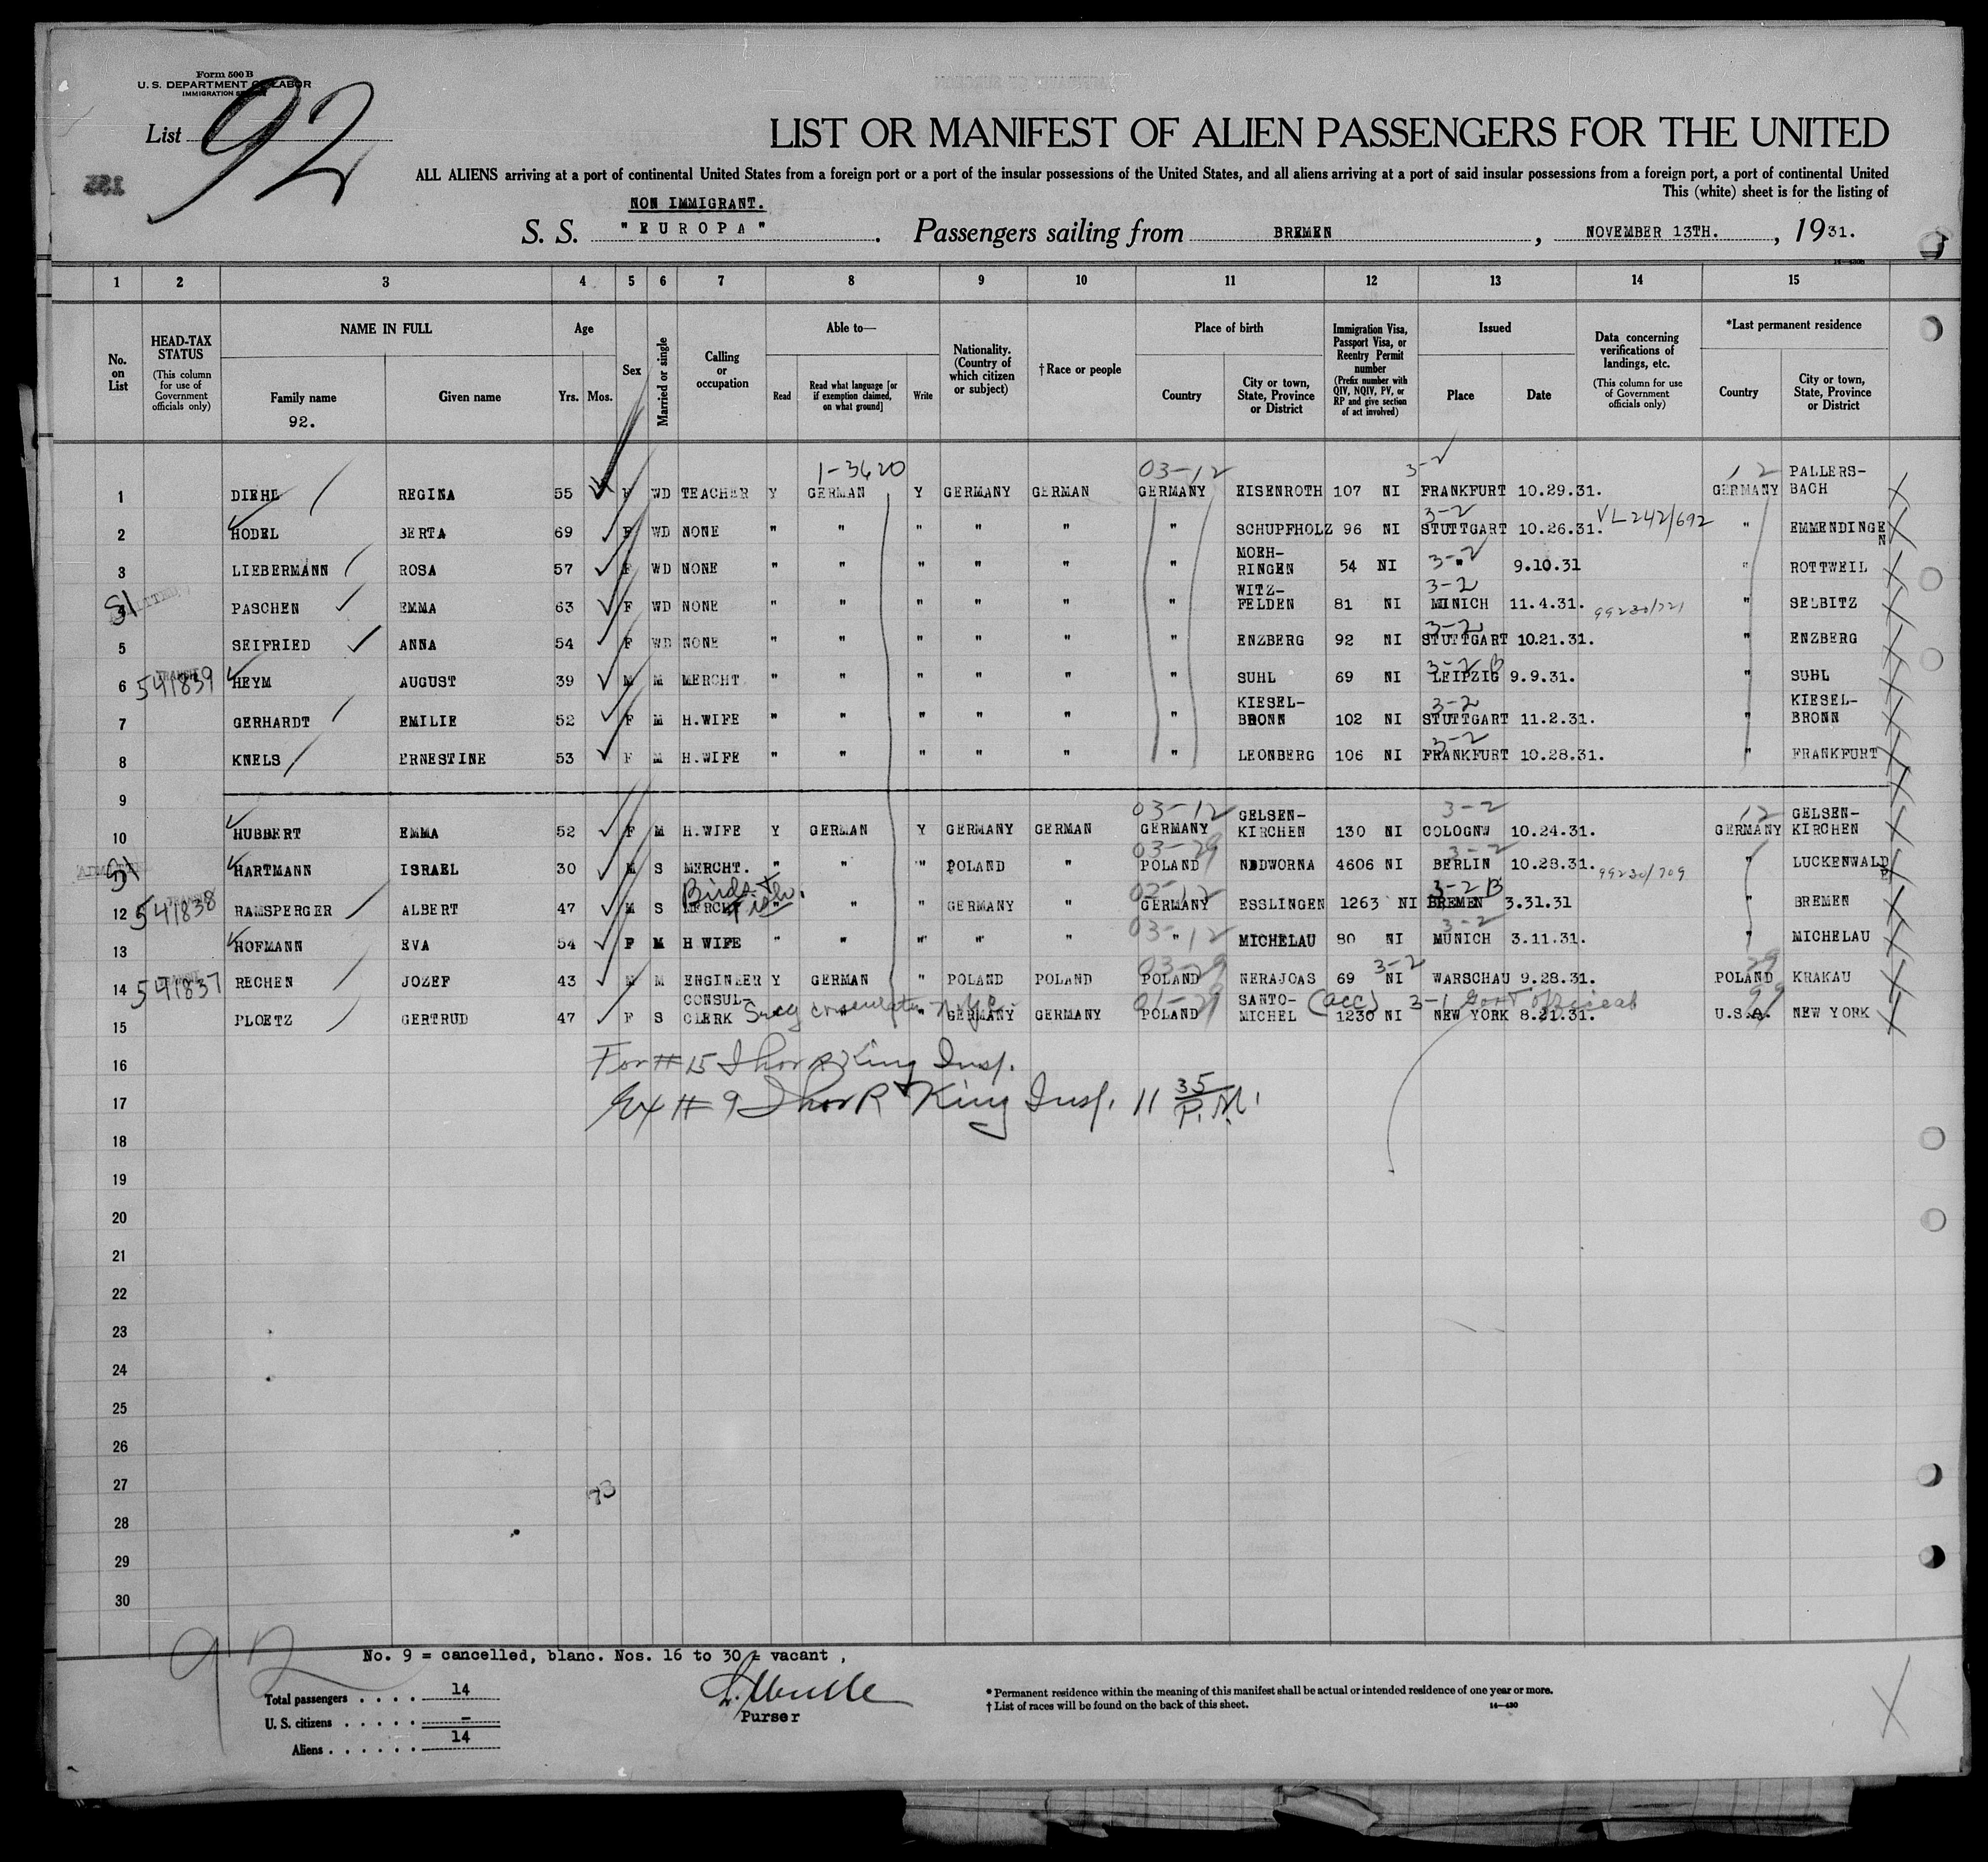 Form 500 B
U. S. DEPARTMENT OF LABOR
IMMIGRATION SERVICE
List 92
LIST OR MANIFEST OF ALIEN PASSENGERS FOR THE UNITED
ALL ALIENS arriving at a port of continental United States from a foreign port or a port of the insular possessions of the United States, and all aliens arriving at a port of said insular possessions from a foreign port, a port of continental United
This (white) sheet is for the listing of
NON IMMIGRANT.
S. S. "EUROPA". Passengers sailing from BREMEN, NOVEMBER 13TH., 1931.
1 2 3 4 5 6 7 8 9 10 11 12 13 14 15
No. on List
HEAD-TAX STATUS (This column for use of Government officials only)
NAME IN FULL
Family name 92.
Given name
Age
Yrs. Mos.
Sex
Married or single
Calling or occupation
Able to—
Read
Read what language [or if exemption claimed, on what ground]
Write
Nationality. (Country of which citizen or subject)
†Race or people
Place of birth
Country
City or town, State, Province or District
Immigration Visa, Passport Visa, or Reentry Permit number (Prefix number with QIV, NQIV, PV, or RP and give section of act involved)
Issued
Place
Date
Data concerning verifications of landings, etc. (This column for use of Government officials only)
*Last permanent residence
Country
City or town, State, Province or District
1-3620 03-12 3-2 12
1 DIEHL REGINA 55 F WD TEACHER Y GERMAN Y GERMANY GERMAN GERMANY EISENROTH 107 NI FRANKFURT 10.29.31. GERMANY PALLERS-BACH
3-2
2 HODEL BERTA 69 F WD NONE " " " " " " SCHUPFHOLZ 96 NI STUTTGART 10.26.31. VL242/692 " EMMENDINGEN
3 LIEBERMANN ROSA 57 F WD NONE " " " " " " MOEH-RINGEN 54 NI 3-2 " 9.10.31 " ROTTWEIL
3-2
SI PASCHEN EMMA 63 F WD NONE " " " " " " WITZ-FELDEN 81 NI MUNICH 11.4.31. 99230/721 " SELBITZ
3-2
5 SEIFRIED ANNA 54 F WD NONE " " " " " " ENZBERG 92 NI STUTTGART 10.21.31. " ENZBERG
3-2 B
6 TRANSIT 541839 HEYM AUGUST 39 M M MERCHT " " " " " " SUHL 69 NI LEIPZIG 9.9.31. " SUHL
3-2
7 GERHARDT EMILIE 52 F M H.WIFE " " " " " " KIESEL-BRONN 102 NI STUTTGART 11.2.31. " KIESEL-BRONN
3-2
8 KNELS ERNESTINE 53 F M H.WIFE " " " " " " LEONBERG 106 NI FRANKFURT 10.28.31. " FRANKFURT
9
03-12 3-2 12
10 HUBBERT EMMA 52 F M H.WIFE Y GERMAN Y GERMANY GERMAN GERMANY GELSEN-KIRCHEN 130 NI COLOGNW 10.24.31. GERMANY GELSEN-KIRCHEN
03-29 3-2
SI HARTMANN ISRAEL 30 M S MERCHT. " " " POLAND " POLAND NDDWORNA 4606 NI BERLIN 10.28.31. 99230/709 " LUCKENWALD
Birds + Fish. 03-12 3-2 B
12 TRANSIT 541838 RAMSPERGER ALBERT 47 M S MERCHT " " " GERMANY " GERMANY ESSLINGEN 1263 NI BREMEN 3.31.31 " BREMEN
03-12 3-2
13 HOFMANN EVA 54 F M H WIFE " " " " " " MICHELAU 80 NI MUNICH 3.11.31. " MICHELAU
03-29 3-2 29
14 TRANSIT 541837 RECHEN JOZEF 43 M M ENGINEER Y GERMAN " POLAND POLAND POLAND NERAJOAS 69 NI WARSCHAU 9.28.31. POLAND KRAKAU
01-29 (acc) 3-1 Gov't official 99
15 PLOETZ GERTRUD 47 F S CONSUL-CLERK " GERMANY GERMANY POLAND SANTO-MICHEL 1230 NI NEW YORK 8.21.31. U.S.A. NEW YORK
16 For #15 Thor R King Insp.
17 Ex # 9 Thor R King Insp. 11 35 P.M.
18
19
20
21
22
23
24
25
26
27
28
29
30
92
No. 9 = cancelled, blanc. Nos. 16 to 30 = vacant ,
Total passengers . . . . 14
U. S. citizens . . . . . –
Aliens . . . . . . 14
Purser
* Permanent residence within the meaning of this manifest shall be actual or intended residence of one year or more.
† List of races will be found on the back of this sheet.
14—430